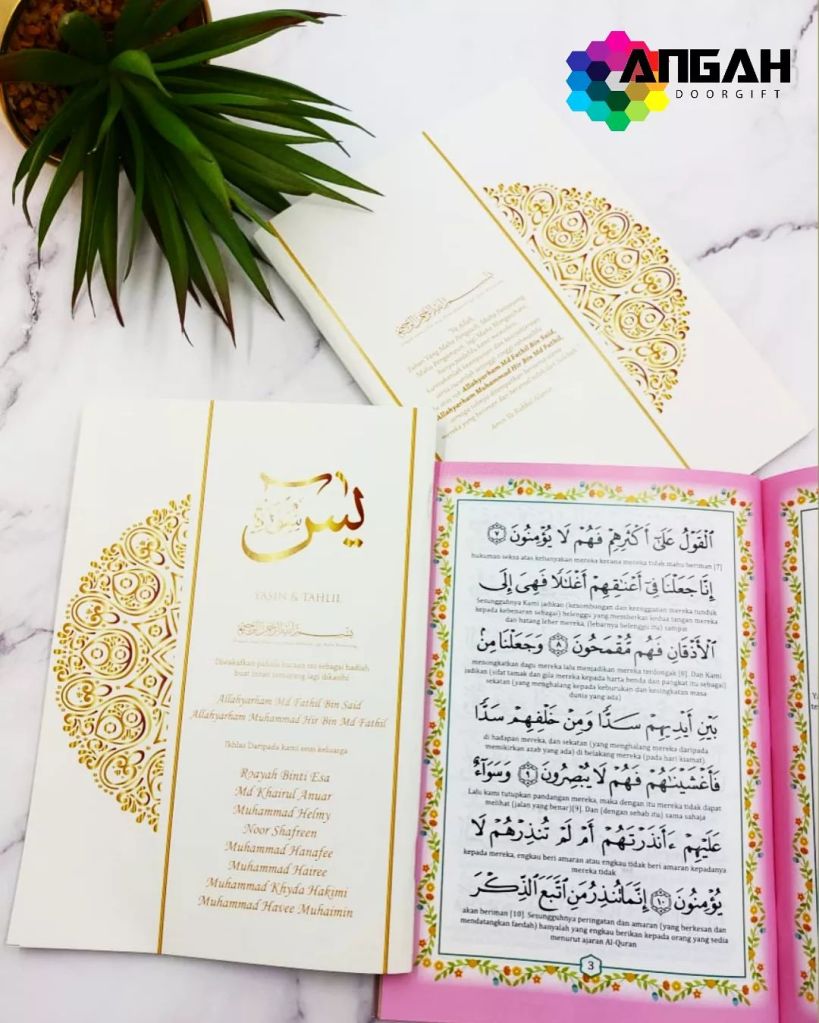 ANGAH
DOORGIFT
بِسْمِ اللَّهِ الرَّحْمَٰنِ الرَّحِيمِ
"Ya Allah,
Tuhan Yang Maha Pengasih, Maha Penyayang,
Maha Pengampun, lagi Maha Mengasihani,
Allahyarham Md Fathil Bin Said,
Allahyarham Muhammad Hir Bin Md Fathil,
Amin Ya Rabbal Alamin
يس
سورة
YASIN & TAHLIL
بِسْمِ اللَّهِ الرَّحْمَٰنِ الرَّحِيمِ
Diwakafkan pahala bacaan ini sebagai hadiah
buat insan tersayang lagi dikasihi
Allahyarham Md Fathil Bin Said
Allahyarham Muhammad Hir Bin Md Fathil
Ikhlas Daripada kami seisi keluarga
Roayah Binti Esa
Md Khairul Anuar
Muhammad Helmy
Noor Shafreen
Muhammad Hanafee
Muhammad Hairee
Muhammad Khyda Hakimi
Muhammad Havee Muhaimin
ٱلْقَوْلُ عَلَىٰٓ أَكْثَرِهِمْ فَهُمْ لَا يُؤْمِنُونَ ٧
hukuman seksa atas kebanyakan mereka kerana mereka tidak mahu beriman [7]
إِنَّا جَعَلْنَا فِىٓ أَعْنَـٰقِهِمْ أَغْلَـٰلًا فَهِىَ إِلَى
Sesungguhnya Kami jadikan (kesombongan dan keengganan mereka tunduk
kepada kebenaran sebagai) belenggu yang memberkas kedua tangan mereka
dan batang leher mereka, (lebarnya belenggu itu) sampai
ٱلْأَذْقَانِ فَهُم مُّقْمَحُونَ ٨ وَجَعَلْنَا مِنۢ
menongkatkan dagu mereka lalu menjadikan mereka terdongak [8]. Dan Kami
jadikan (sifat tamak dan gila mereka kepada harta benda dan pangkat itu sebagai)
sekatan (yang menghalang kepada keburukan dan kesingkatan masa
dunia yang ada)
بَيْنِ أَيْدِيهِمْ سَدًّا وَمِنْ خَلْفِهِمْ سَدًّا
di hadapan mereka, dan sekatan (yang menghalang mereka daripada
memikirkan azab yang ada) di belakang mereka (pada hari kiamat)
فَأَغْشَيْنَـٰهُمْ فَهُمْ لَا يُبْصِرُونَ ٩ وَسَوَآءٌ
Lalu kami tutupkan pandangan mereka, maka dengan itu mereka tidak dapat
melihat (jalan yang benar)[9]. Dan (dengan sebab itu) sama sahaja
عَلَيْهِمْ ءَأَنذَرْتَهُمْ أَمْ لَمْ تُنذِرْهُمْ لَا
kepada mereka, engkau beri amaran atau engkau tidak beri amaran kepadanya
mereka tidak
يُؤْمِنُونَ ١٠ إِنَّمَا تُنذِرُ مَنِ ٱتَّبَعَ ٱلذِّكْرَ
akan beriman [10]. Sesungguhnya peringatan dan amaran (yang berkesan dan
mendatangkan faedah) hanyalah yang engkau berikan kepada orang yang sedia
menurut ajaran Al-Quran
3